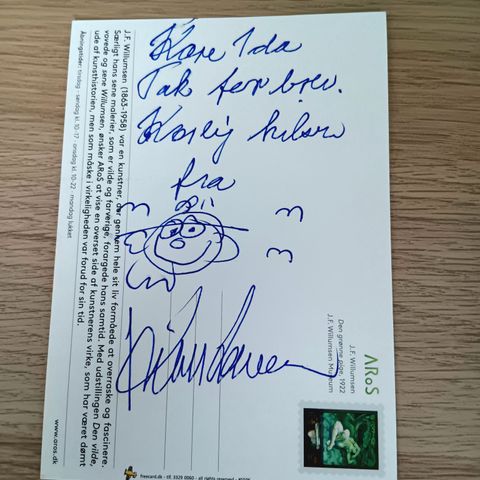 Kære Ida
Tak for brev.
Kærlig hilsen
fra
J.F. Willumsen (1863-1958) var en kunstner, der gennem hele sit liv formåede at overraske og fascinere.
Særligt hans sene malerier, som er vilde og farverige, forargede hans samtid. Med udstillingen Den vilde,
vovede og sene Willumsen, ønsker ARoS at vise en overset side af kunstnerens virke, som har været dømt
ude af kunsthistorien, men som måske i virkeligheden var forud for sin tid.
Åbningstider: tirsdag - søndag kl. 10-17 - onsdag kl. 10-22 - mandag lukket
www.aros.dk
ARoS
J.F. Willumsen
Den grønne pige, 1922
J.F. Willumsen Museum
freecard.dk - tlf. 3329 0060 - all rights reserved